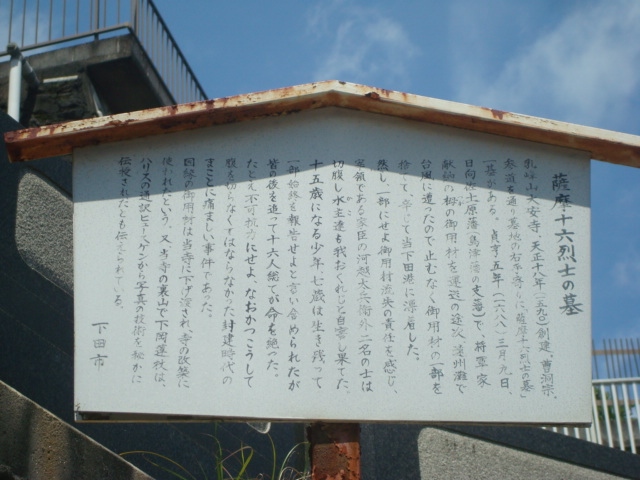 薩摩十六烈士の墓
乳峰山大安寺、天正十八年(一五九〇)創建、曹洞宗、
参道を通り墓地の右奥寺らに「薩摩十六烈士の墓」
一基がある。貞享五年(一六八八)三月九日、
日向佐土原藩(島津藩の支藩)で、将軍家
献納の栂の御用材を運送の途次、遠州灘で
台風に遭たので止むなく御用材の一部を
捨てて、辛じて当下田港に漂着した。
然し、一部にせよ御用材流失の責任を感じ、
宰領である家臣の河越太兵衛外二名の士は
切腹し水主達も我おくれじと自害し果てた、
十五歳になる少年七歳は生き残って
一部始終を報告せよと言い含められたが
皆の後を追って十六人総てが命を絶った。
たとえ不可抗力にせよ、なおかつこうして
腹を切らなくてはならなかった封建時代の
まことに痛ましい事件であった。
回漕の御用材は当寺に下げ渡され、寺の改築に
使われたという。又、当寺の裏山で下岡蓮杖は、
ハリスの通訳ヒュースケンから写真の技術を秘かに
伝授されたとも伝えられている。
下田市